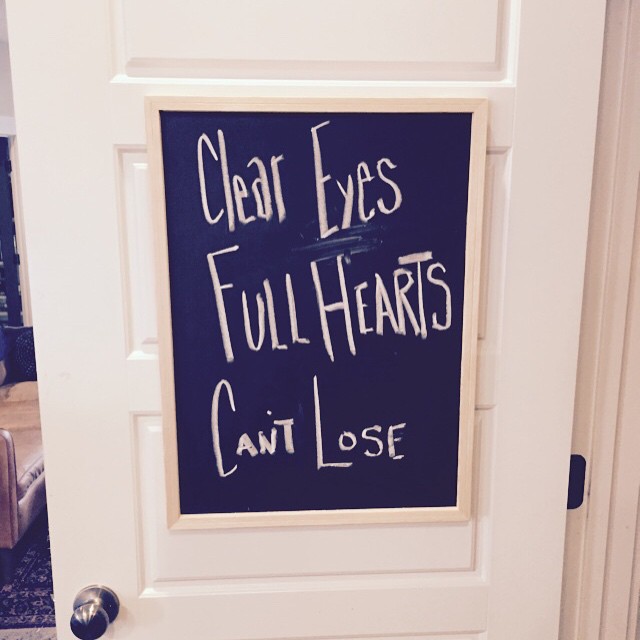 Clear Eyes
FULL HEARTS
CAN'T LOSE